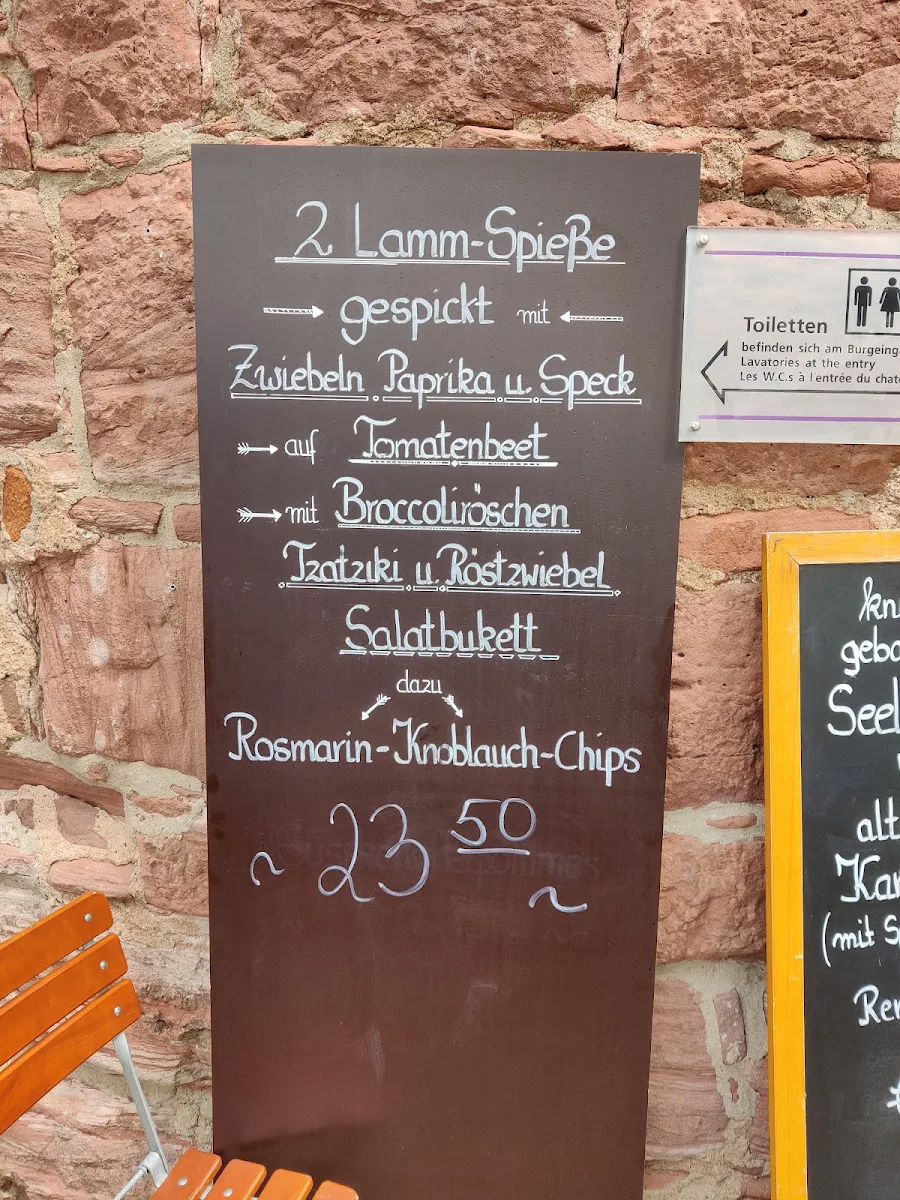 2 Lamm-Spieße
gespickt mit
Zwiebeln Paprika u. Speck
auf Tomatenbeet
mit Broccoliröschen
Tzatziki u. Röstzwiebel
Salatbukett
dazu
Rosmarin-Knoblauch-Chips
~ 23 50 ~
Toiletten
befinden sich am Burgeinga
Lavatories at the entry
Les W.C.s à l'entrée du chat
kn
geba
Seel
alt
Kar
(mit S
Rer